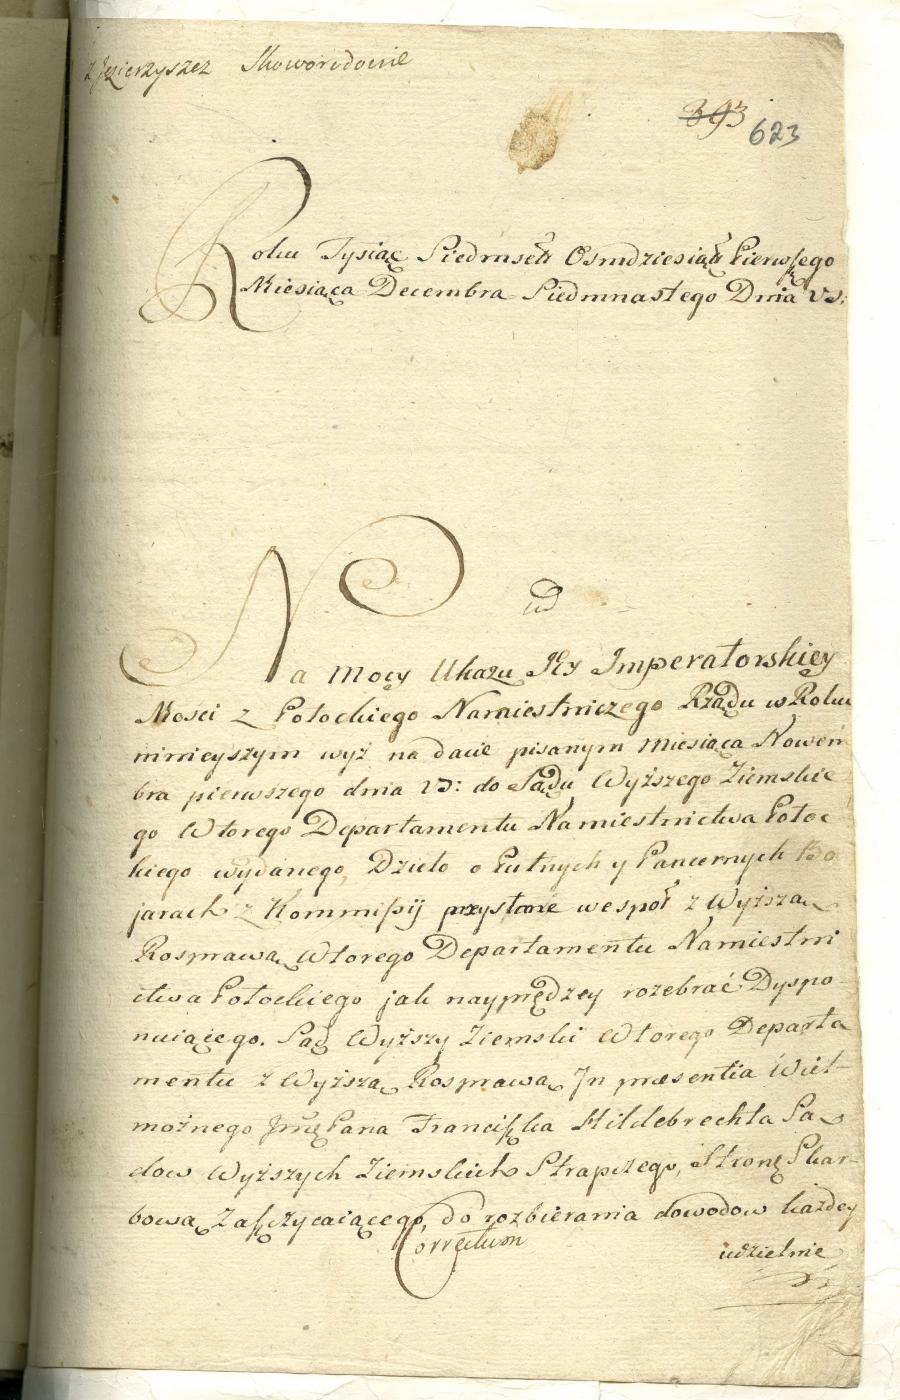 z Jezierzyszcz Skoworodocie
393
623
Roku Tysiąc Siedmset Osmdziesiąt Pierwszego
Miesiąca Decembra Siedmnastego Dnia VS:
ud
Na mocy Ukazu Jey Imperatorskiey
Mosci z Połockiego Namiestniczego Rządu w Roku
ninieyszym wyż na dacie pisanym miesiąca Nowem
bra pierwszego dnia VS: do Sądu Wyższego Ziemskie
go Wtorego Departamentu Namiestnictwa Połoc
kiego wydanego, Dzieło o Putnych y Pancernych Bo
jarach z Kommissyi przysłane wespoł z Wyższą
Rosprawą Wtorego Departamentu Namiestni
ctwa Połockiego jak nayprędzey rozebrać Dyspo
nuiącego. Sąd Wyższy Ziemski Wtorego Departa
mentu z Wyższą Rosprawą Jn præsentia Wiel
możnego Jmę Pana Franciszka Hildebrechta Są
dow Wyższych Ziemskich Strapczego, Stronę Skar
bową Zaszczycaiącego, do rozbierania dowodow każdey
Correctum
udzielnie